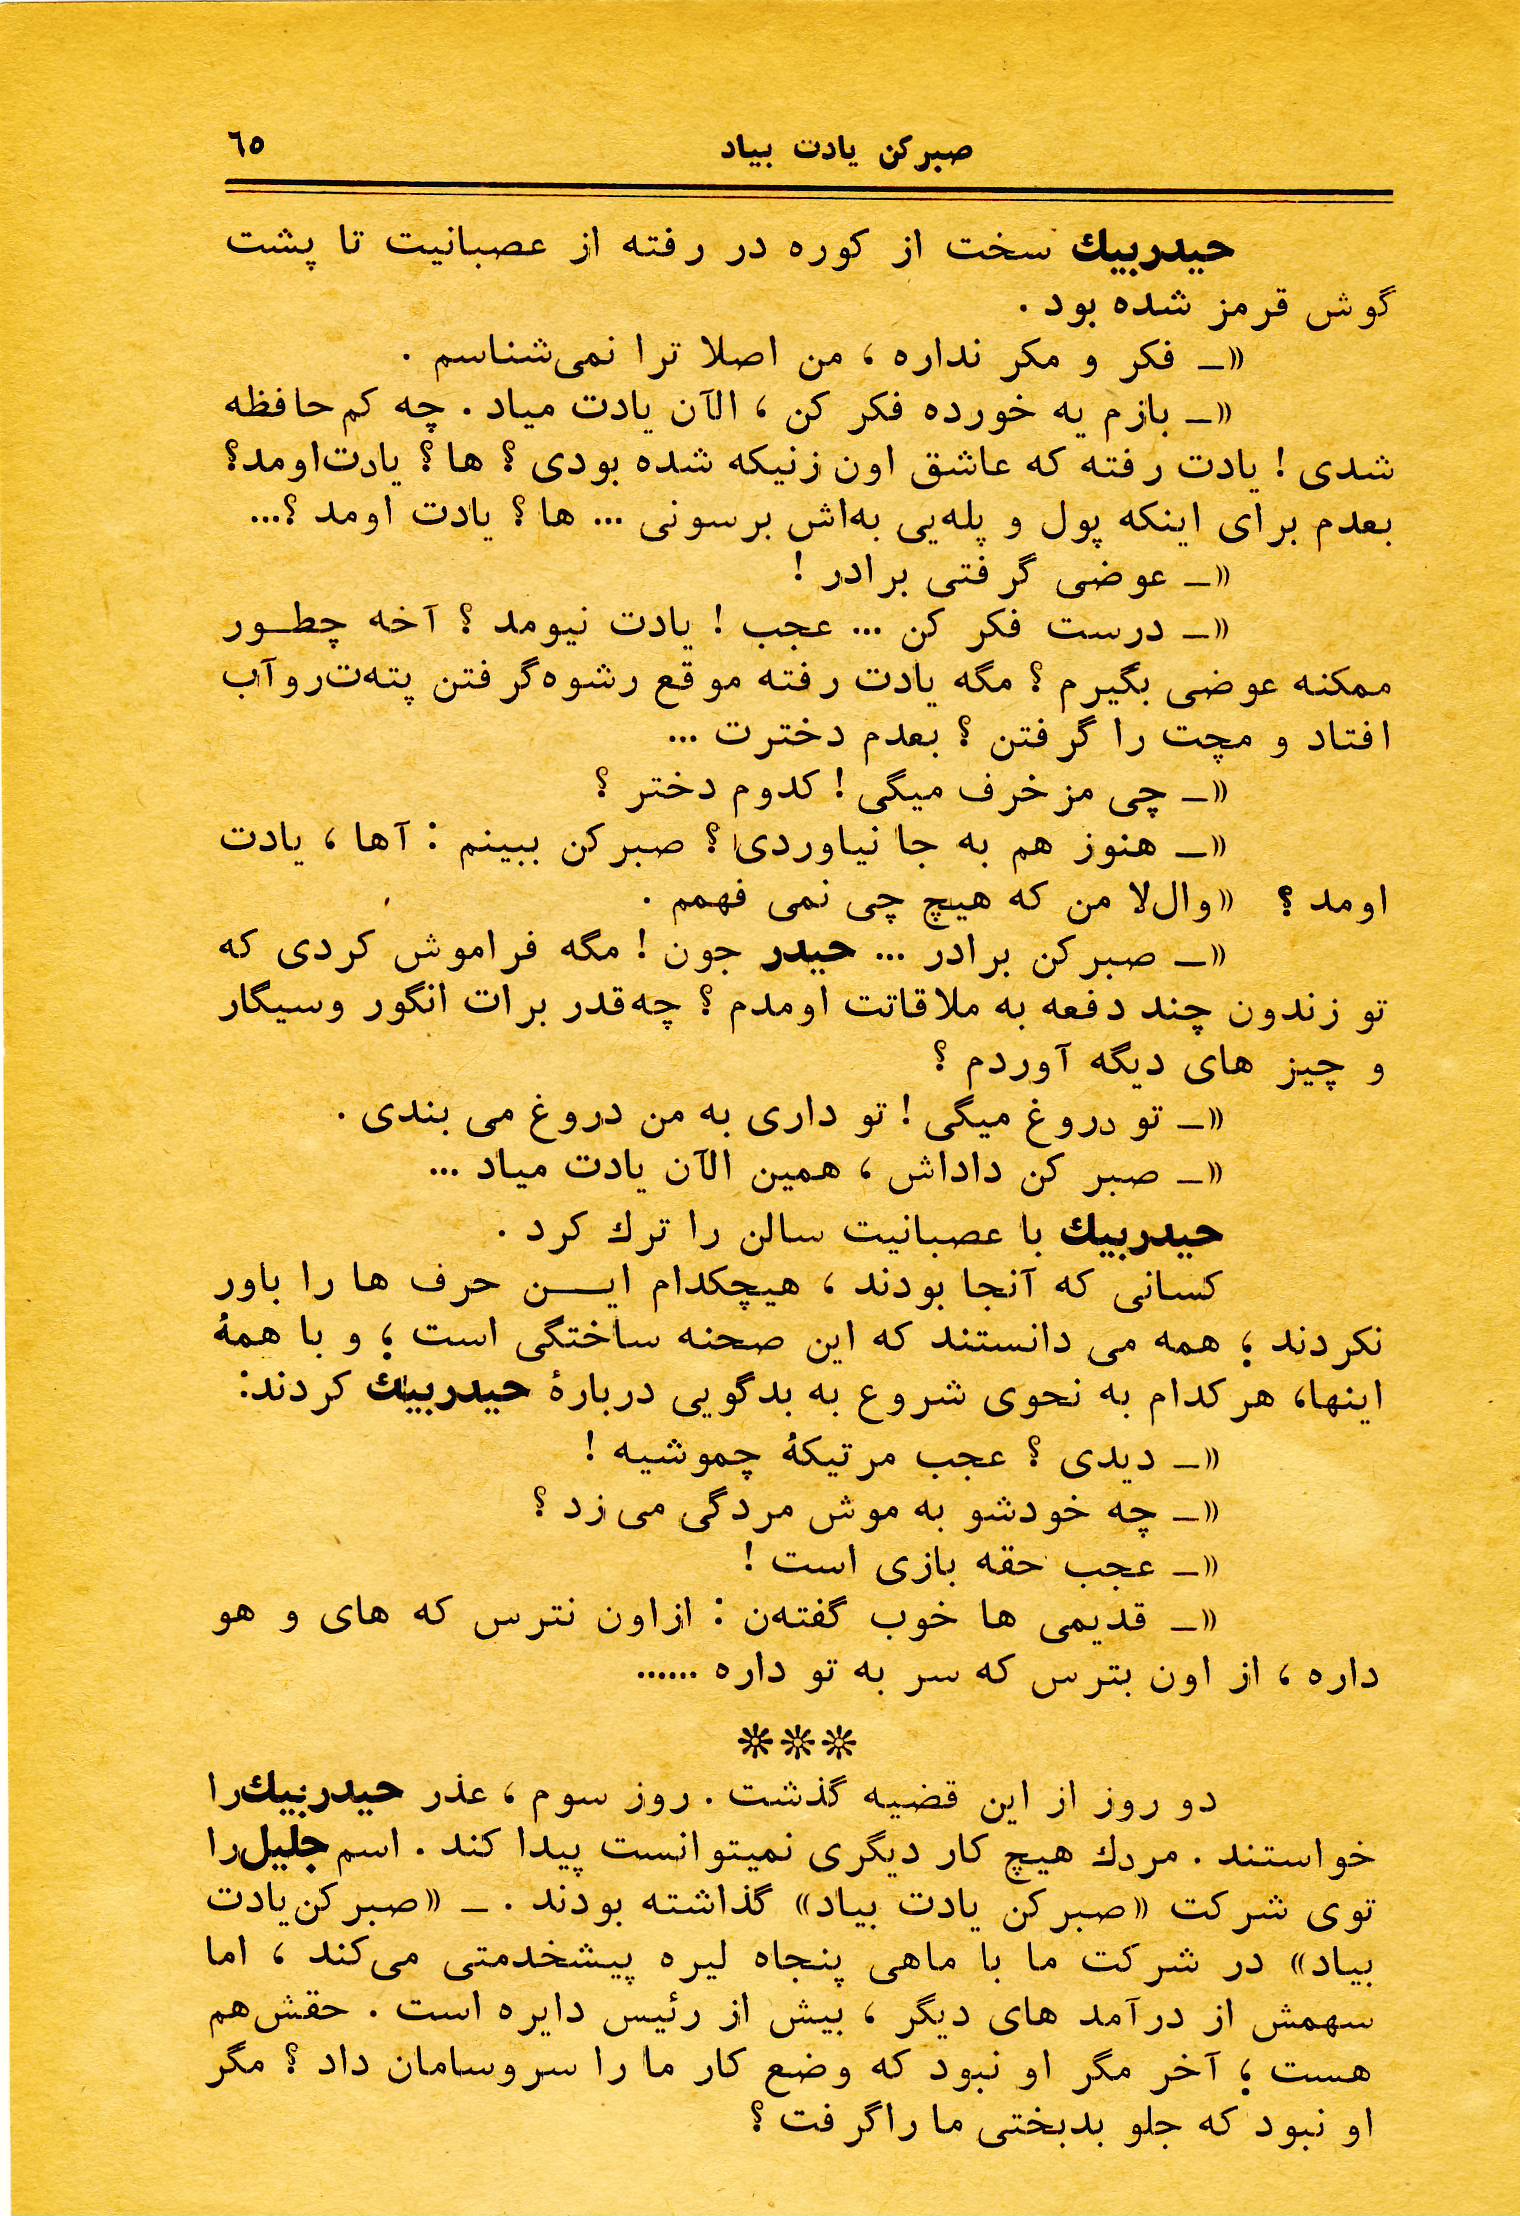 صبرکن یادت بیاد ٦٥
حیدربیك سخت از کوره در رفته از عصبانیت تا پشت
گوش قرمز شده بود .
«ــ فکر و مکر نداره ، من اصلا ترا نمی‌شناسم .
«ــ بازم یه خورده فکر کن ، الآن یادت میاد . چه کم‌حافظه
شدی ! یادت رفته که عاشق اون زنیکه شده بودی ؟ ها ؟ یادت‌اومد؟
بعدم برای اینکه پول و پله‌یی به‌اش برسونی ... ها ؟ یادت اومد ؟...
«ــ عوضی گرفتی برادر !
«ــ درست فکر کن ... عجب ! یادت نیومد ؟ آخه چطـور
ممکنه عوضی بگیرم ؟ مگه یادت رفته موقع رشوه‌گرفتن پته‌ت‌روآب
افتاد و مچت را گرفتن ؟ بعدم دخترت ...
«ــ چی مزخرف میگی ! کدوم دختر ؟
«ــ هنوز هم به جا نیاوردی ؟ صبرکن ببینم : آها ، یادت
اومد ؟ «وال‌لا من که هیچ چی نمی فهمم .
«ــ صبرکن برادر ... حیدر جون ! مگه فراموش کردی که
تو زندون چند دفعه به ملاقاتت اومدم ؟ چه‌قدر برات انگور وسیگار
و چیز های دیگه آوردم ؟
«ــ تو دروغ میگی ! تو داری به من دروغ می بندی .
«ــ صبر کن داداش ، همین الآن یادت میاد ...
حیدربیك با عصبانیت سالن را ترك کرد .
کسانی که آنجا بودند ، هیچکدام ایــن حرف ها را باور
نکردند ؛ همه می دانستند که این صحنه ساختگی است ؛ و با همهٔ
اینها، هرکدام به نحوی شروع به بدگویی دربارهٔ حیدربیك کردند:
«ــ دیدی ؟ عجب مرتیکهٔ چموشیه !
«ــ چه خودشو به موش مردگی می زد ؟
«ــ عجب حقه بازی است !
«ــ قدیمی ها خوب گفته‌ن : ازاون نترس که های و هو
داره ، از اون بترس که سر به تو داره ......
❊❊❊
دو روز از این قضیه گذشت . روز سوم ، عذر حیدربیك‌را
خواستند . مردك هیچ کار دیگری نمیتوانست پیدا کند . اسم‌جلیل‌را
توی شرکت «صبرکن یادت بیاد» گذاشته بودند . ــ «صبرکن‌یادت
بیاد» در شرکت ما با ماهی پنجاه لیره پیشخدمتی می‌کند ، اما
سهمش از درآمد های دیگر ، بیش از رئیس دایره است . حقش‌هم
هست ؛ آخر مگر او نبود که وضع کار ما را سروسامان داد ؟ مگر
او نبود که جلو بدبختی ما راگرفت ؟